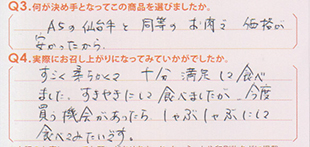 Q3.何が決め手となってこの商品を選びましたか。
A5の仙台牛と同等のお肉で価格が
安かったから。
Q4.実際にお召し上がりになってみていかがでしたか。
すごく柔らかくて十分満足して食べ
ました。すきやきにして食べましたが、今度
買う機会があったらしゃぶしゃぶにして
食べてみたいです。